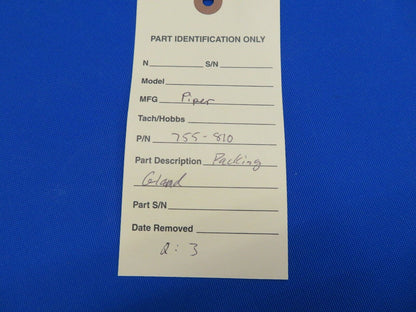 PART IDENTIFICATION ONLY
N S/N
Model
MFG Piper
Tach/Hobbs
P/N 755-810
Part Description Packing
Gland
Part S/N
Date Removed
Q: 3